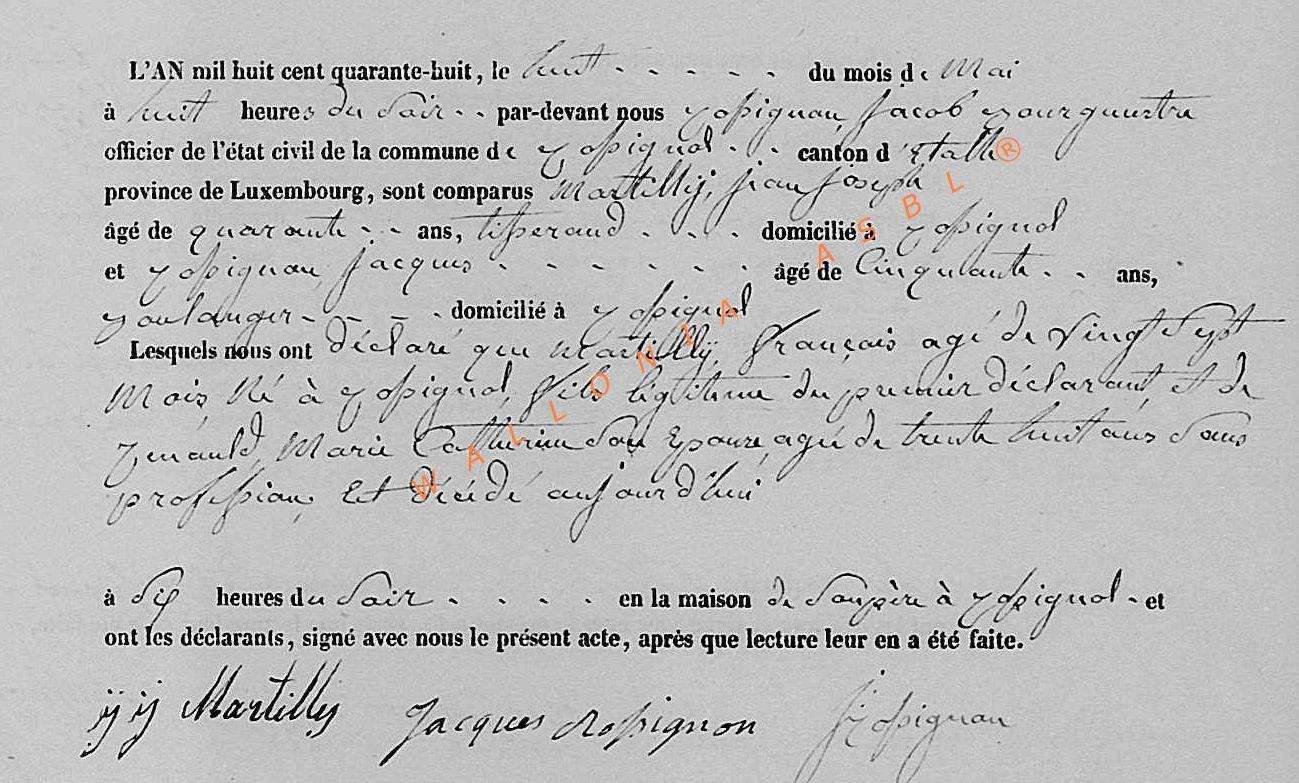 L'AN mil huit cent quarante-huit, le huit - - - - - du mois de Mai
à huit heures du Soir - - par-devant nous Rossignon, Jacob Bourguestre
officier de l'état civil de la commune de Rossignol - - canton d'Etalle
province de Luxembourg, sont comparus Martilly, Jean Joseph
âgé de quarante - - ans, tisserand - - - domicilié à Rossignol
et Rossignon, Jacques - - - - - - - âgé de Cinquante - - ans,
Boulanger - - - - domicilié à Rossignol
Lesquels nous ont déclaré que Martilly, François agé de Vingt Sept
Mois Né à Rossignol, Fils légitime du premier déclarant, et de
Renauld, Marie Catherine Son Epouse, agée de trente huit ans Sans
profession, Est Décédé aujourd'hui
à Six heures du Soir - - - - en la maison de Son père à Rossignol - et
ont les déclarants, signé avec nous le présent acte, après que lecture leur en a été faite.
jj Martilly Jacques Rossignon J Rossignon
WALLONIA ASBL ®